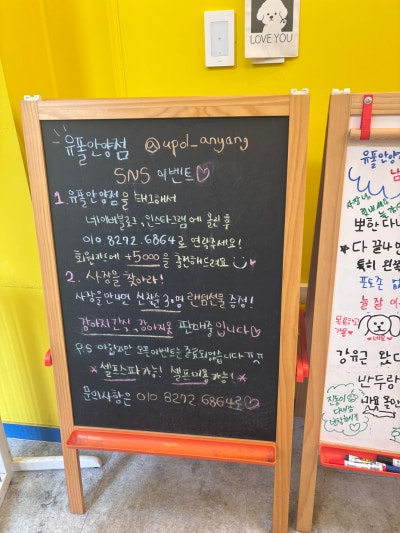 LOVE YOU
유폴안양점 @upol_anyang
SNS 이벤트♡
1. 유폴안양점을 태그해서
네이버블로그, 인스타그램에 올린 후
010 8272.6864로 연락주세요!
회원카드에 +5000을 충전해드려요
2. 사장을 찾아라!
사장을 만나면 선착순 30명 랜덤선물 증정!
강아지간식, 강아지용품 판매중입니다♡
P.S 아쉽지만 오픈이벤트는 종료되었습니다ㅠㅠ
*셀프스파가능! 셀프미용가능!*
문의사항은 010 8272 6864로♡
유폴안양
뽀한다
다 끝나면
특히 왼쪽
늘 잘
강유근 왔다